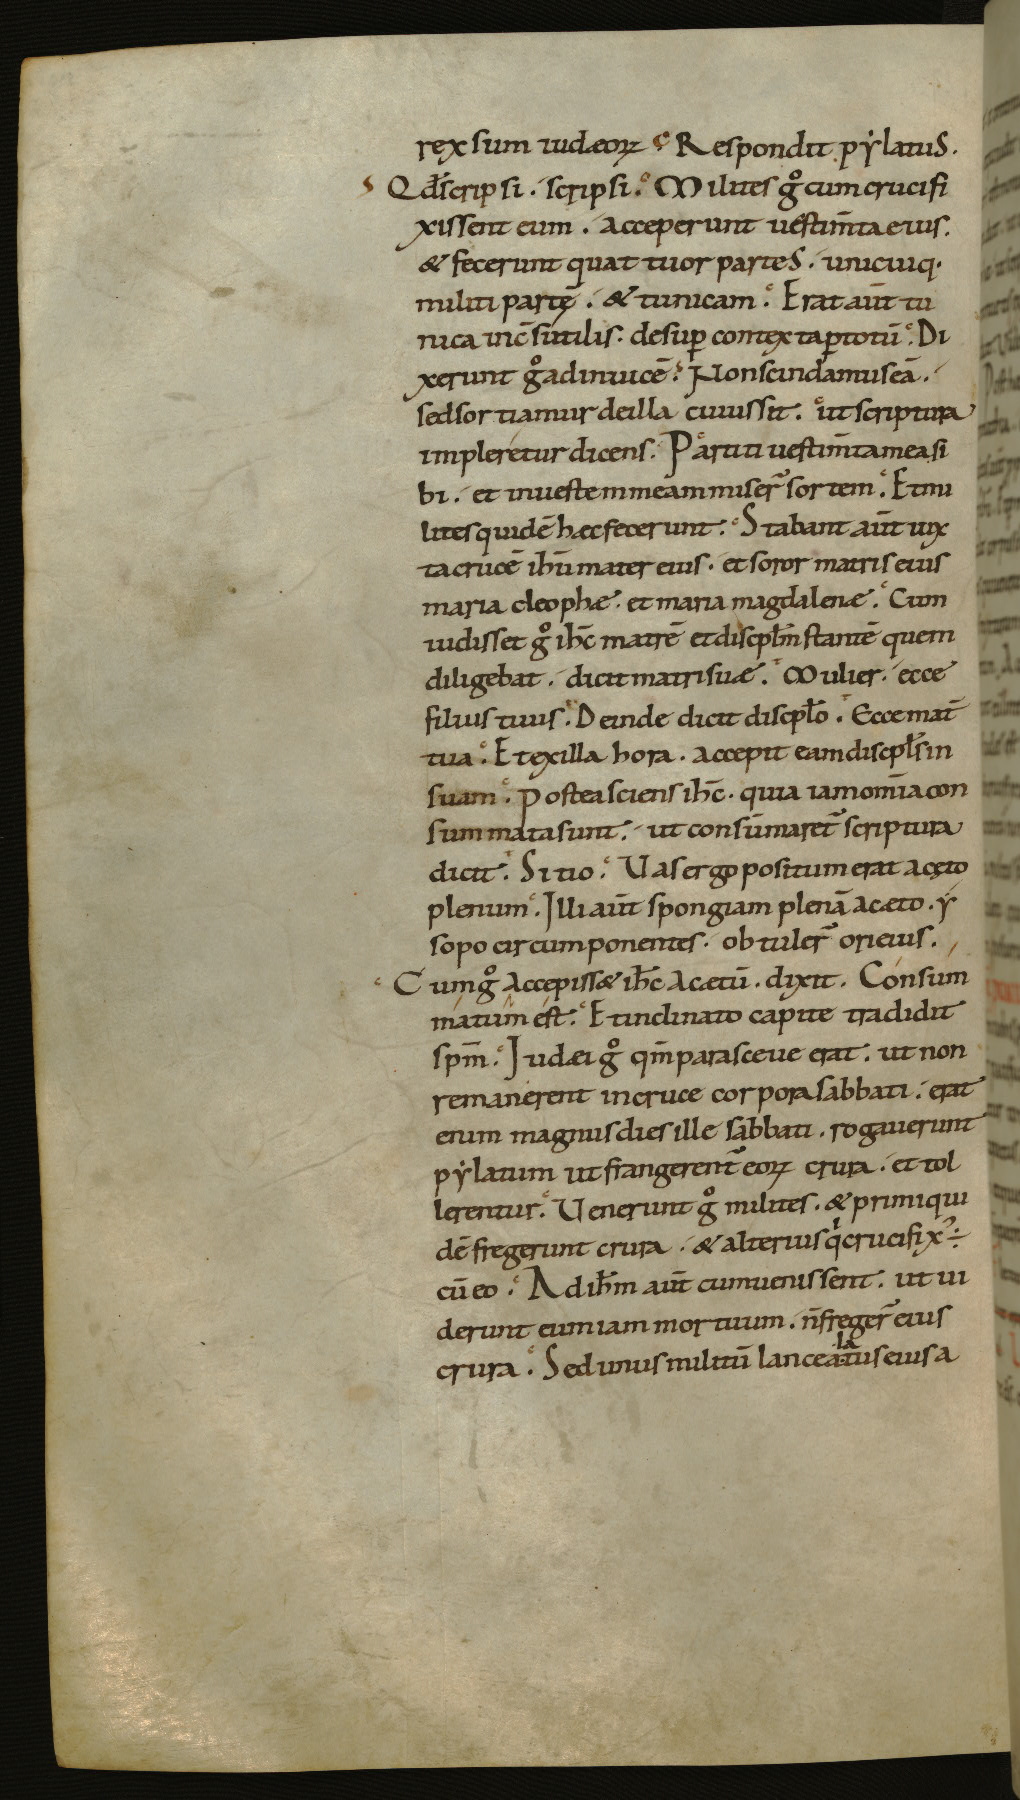 rex sum iudæoꝝ c Respondit pẏlatus.
s Qd̅ scripsi. scripsi. Milites g̊ cum crucifi
xissent eum. acceperunt uestim̅ta eius.
& fecerunt quattuor partes. unicuiq·
militi partē. & tunicam. Erat aut̅ tu
nica inc̅sutilis. desup̱ contexta p̱ totū. Di
xerunt g̊ ad inuicē. Non scindamus eā.
sed sortiamur de illa cuius sit. ut scriptura
impleretur dicens. Partiti uestim̅ta mea si
bi. et in uestem meam miser̅ sortem. Et mi
lites quidē hæc fecerunt. Stabant aut̅ iux
ta crucē ihu̅ mater eius. et soror matris eius
maria cleophæ. et maria magdalenæ. Cum
uidisset g̊ ihc̅ matrē et discipl̅m stantē quem
diligebat. dicit matri suæ. Mulier. ecce
filius tuus. Deinde dicit discipl̅o. Ecce mat̅
tua. Et ex illa hora. accepit eam discipl̅s in
suam. Postea sciens ihc̅. quia iam om̅ia con
summata sunt. ut consūmaret̅ scriptura
dicit. Sitio. Vas ergo positum erat acęto
plenum. Illi aut̅ spongiam plenā acæto. ẏ
sopo circumponentes. obtuler̅ ori eius.
Cum g̊ accepissæ ihc̅ acætū. dixit. Consum
matum est. Et inclinato capite tradidit
spm̅. Iudæi g̊ qm̅ parasceue erat. ut non
remanerent in cruce corpora sabbati. erat
enim magnus dies ille sabbati. rogauerunt
pẏlatum ut frangerent̅ eoꝝ crura. et tol
lerentur. Venerunt g̊ milites. & primi qui
dē fregerunt crura. & alterius qͥ crucifixꝰ ÷
cū eo. Ad ihm̅ aut̅ cum uenissent. ut ui
derunt eum iam mortuum. n̅ freger̅ eius
crura. Sed unus militū lancea latus eius a